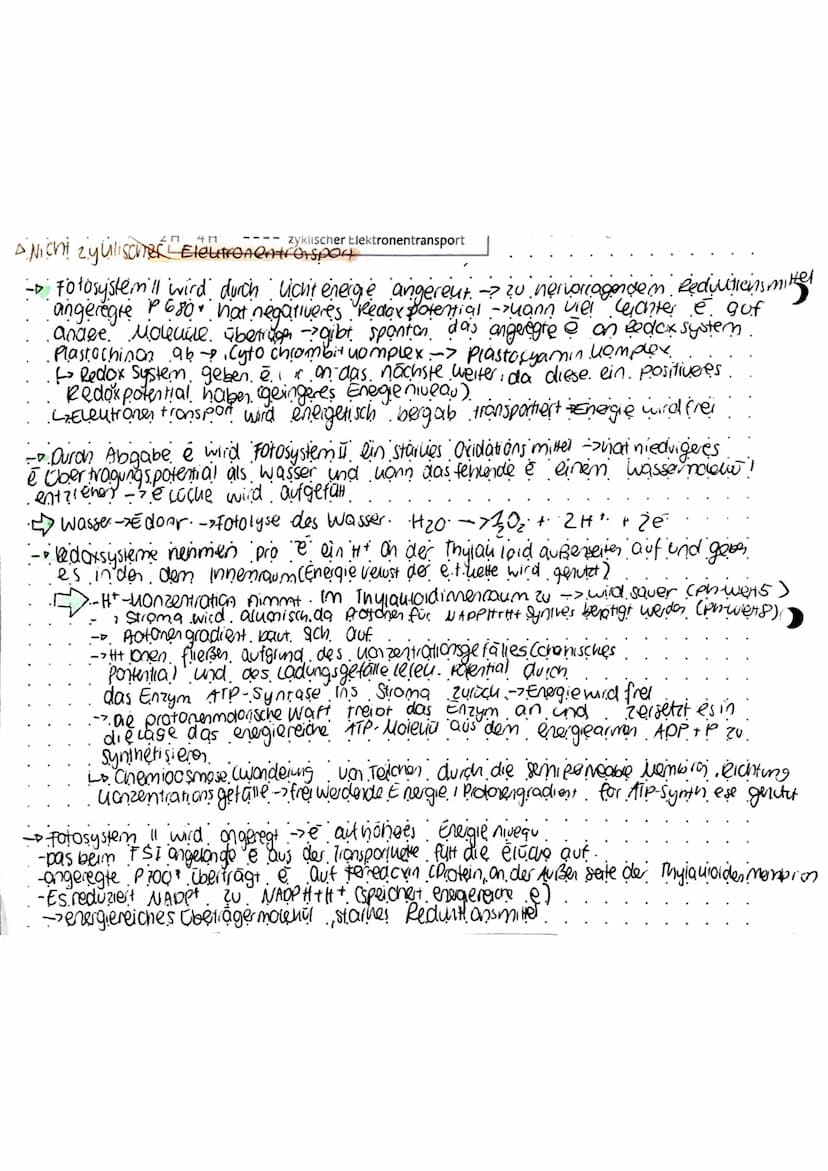 2H 4H ---- zyklischer Elektronentransport
Nicht zyklischer Elektronentransport
→ Fotosystem II wird durch Lichtenergie angeregt → zu hervorragendem Reduktionsmittel
angeregte P680* hat negativeres Redoxpotential → kann viel leichter e⁻ auf
andere Moleküle übertragen → gibt spontan das angeregte e⁻ an Redoxsystem
Plastochinon ab → Cytochrombf komplex → Plastocyanin komplex
↳ Redox System geben e⁻ an das nächste weiter, da diese ein positiveres
Redoxpotential haben (geringeres Energieniveau)
↳ Elektronentransport wird energetisch bergab transportiert → Energie wird frei
→ Durch Abgabe e⁻ wird Fotosystem II ein starkes Oxidationsmittel → hat niedrigeres
e⁻ Übertragungspotential als Wasser und kann das fehlende e⁻ einem Wassermolekül
entziehen → e⁻ Lücke wird aufgefüllt
⇨ Wasser → e⁻ donor → Fotolyse des Wasser H2O → ½O2 + 2H⁺ + 2e⁻
→ Redoxsysteme nehmen pro e⁻ ein H⁺ an der Thylakoid außenseite auf und geben
es in den dem Innenraum (Energie verlust der e.t. kette wird genutzt)
⇨ - H⁺-Konzentration nimmt im Thylakoidinnenraum zu → wird sauer (ph-wert 5)
→ Stroma wird alkalisch, da Protonen für NADPH+H+ Synthese benötigt werden (ph-wert 8)
→ Protonengradient baut sich auf
→ H+ Ionen fließen aufgrund des Konzentrationsgefälles (chemisches
Potential) und des Ladungsgefälle (elek. Potential) durch
das Enzym ATP-Syntase ins Stroma zurück → Energie wird frei
→ Die protonenmotorische Kraft treibt das Enzym an und zersetzt es in
die Lage das energiereiche ATP-Molekül aus dem energiearmen ADP + P zu
synthetisieren
↳ Chemiosmose (Wanderung von Teilchen durch die semipermeable Membran, Richtung
Konzentrationsgefälle → frei werdende Energie / Protonengradient für ATP-Synthese genutzt
→ Fotosystem II wird angeregt → e⁻ auf höheres Energieniveau
- Das beim FSI angelangte e⁻ aus der Transportkette füllt die e⁻ lücke auf
- angeregte P700* überträgt e⁻ auf Feredoxin (Protein, an der Außen seite der Thylakoidenmembran
- Es reduziert NADP+ zu NADPH+H+ (speichert energiereiche e⁻)
→ energiereiches Überträgermolekül, starkes Reduktionsmittel